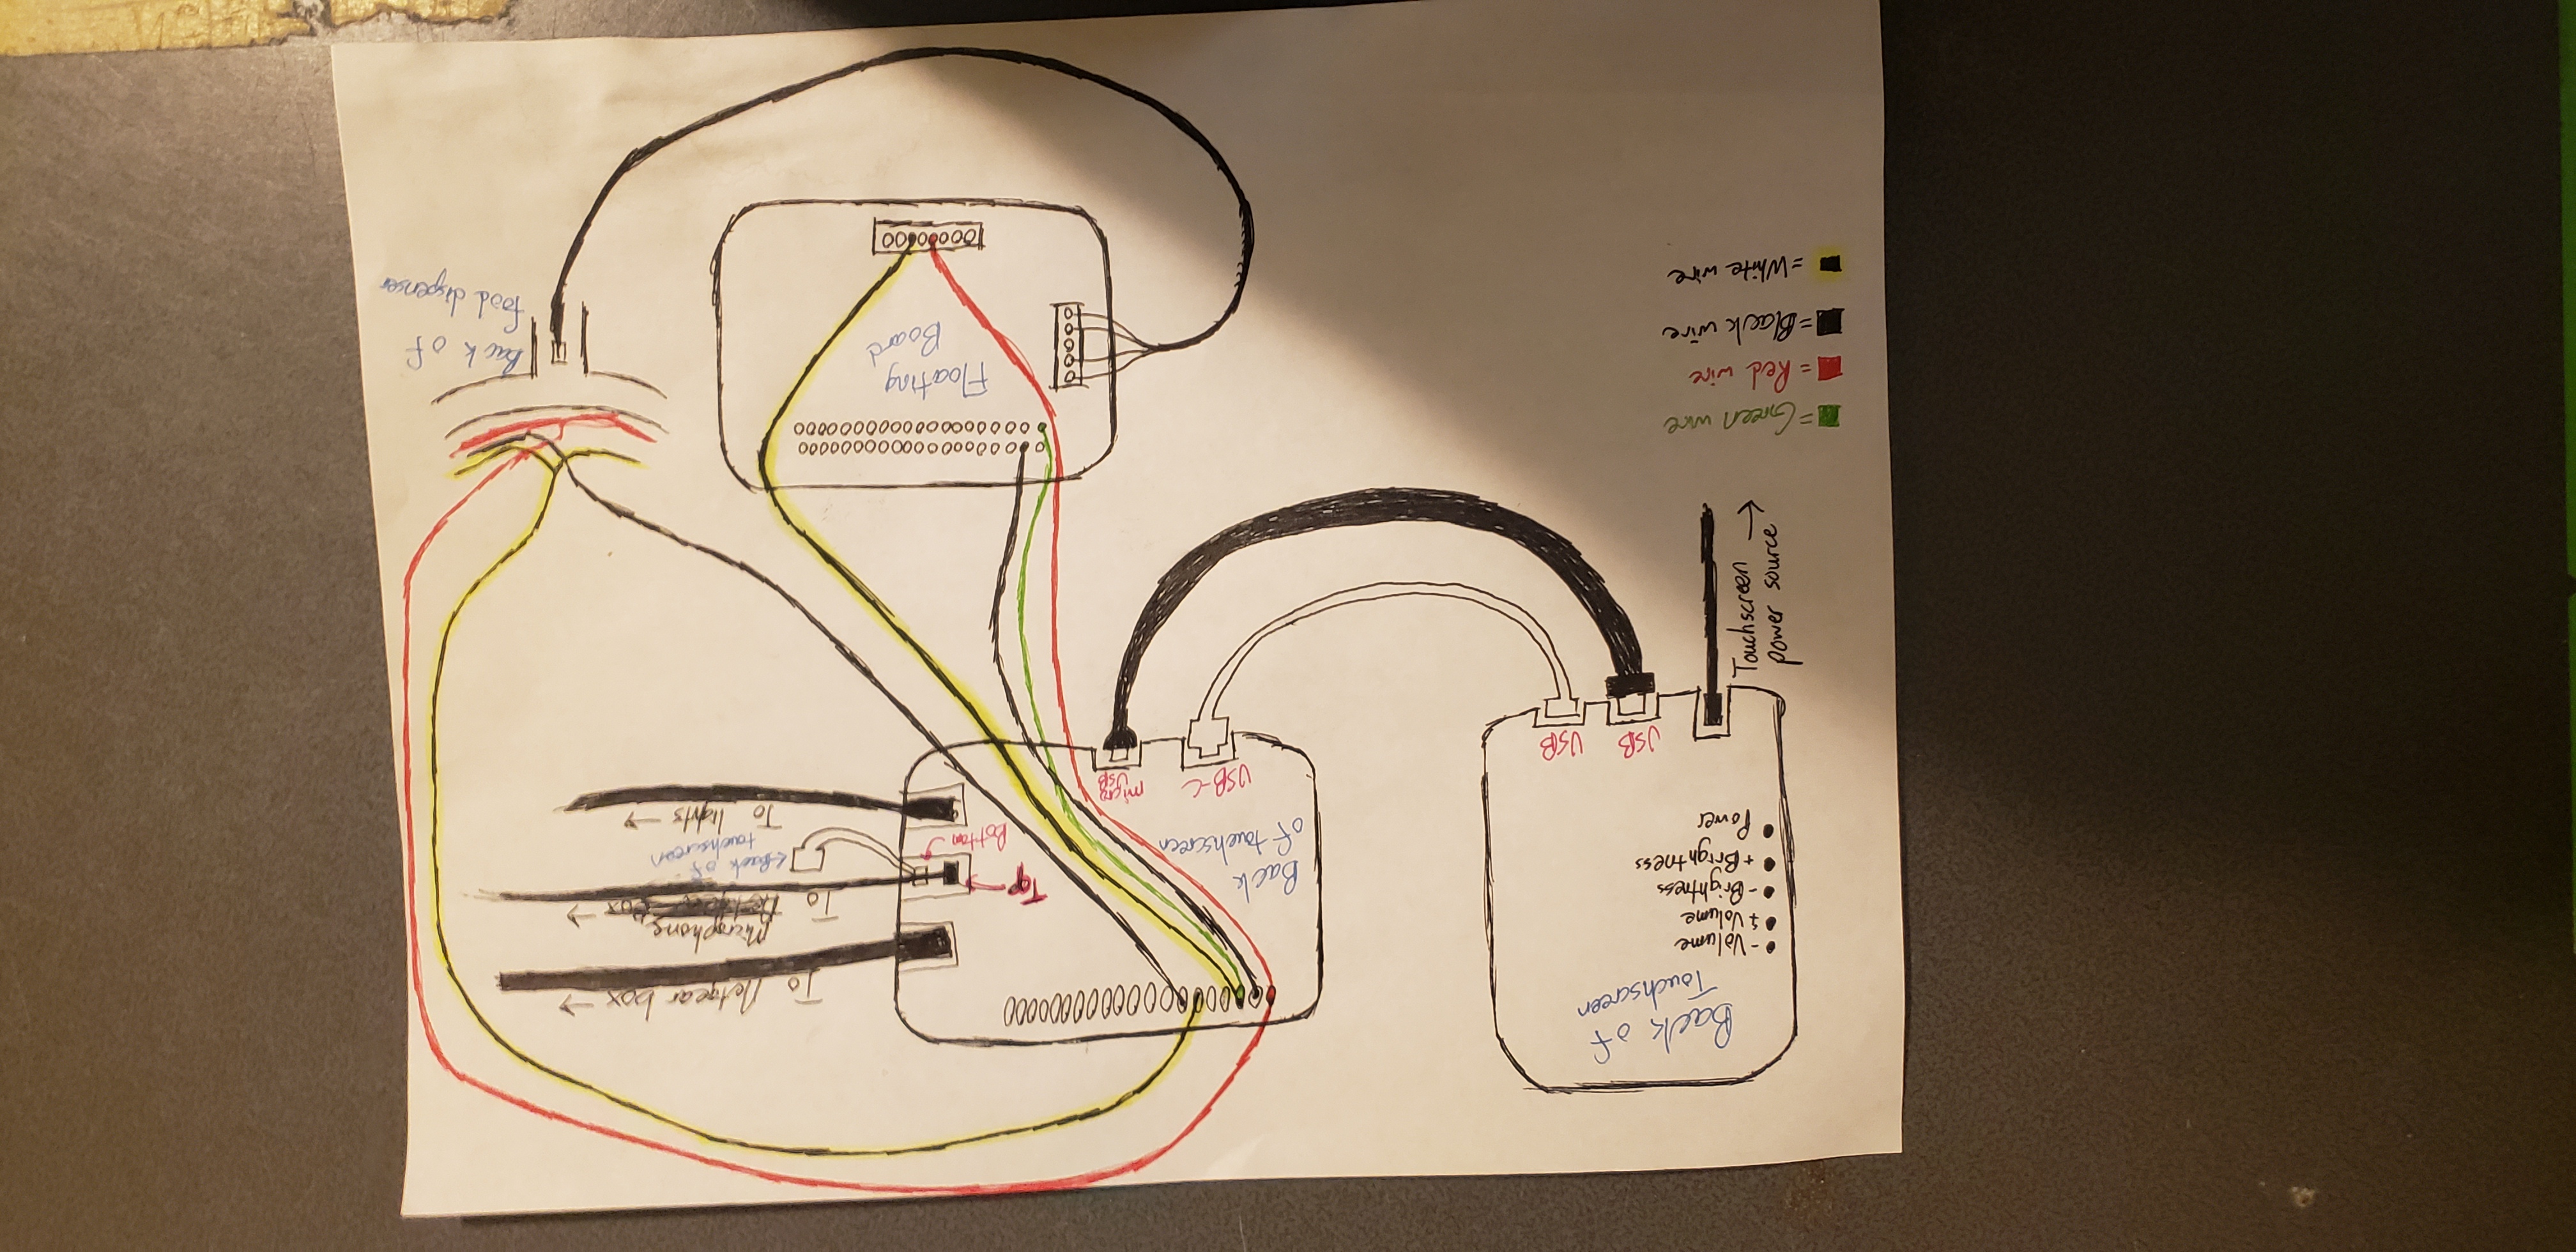 Back of
Touchscreen
- Volume
+ Volume
- Brightness
+ Brightness
Power
USB
USB
Touchscreen
power source →
Back
of touchscreen
USB-C
micro
USB
Top →
Bottom
To Netgear box →
Microphone
To →
← Back of
touchscreen
To lights →
Floating
Board
Back of
food dispenser
= Green wire
= Red wire
= Black wire
= White wire